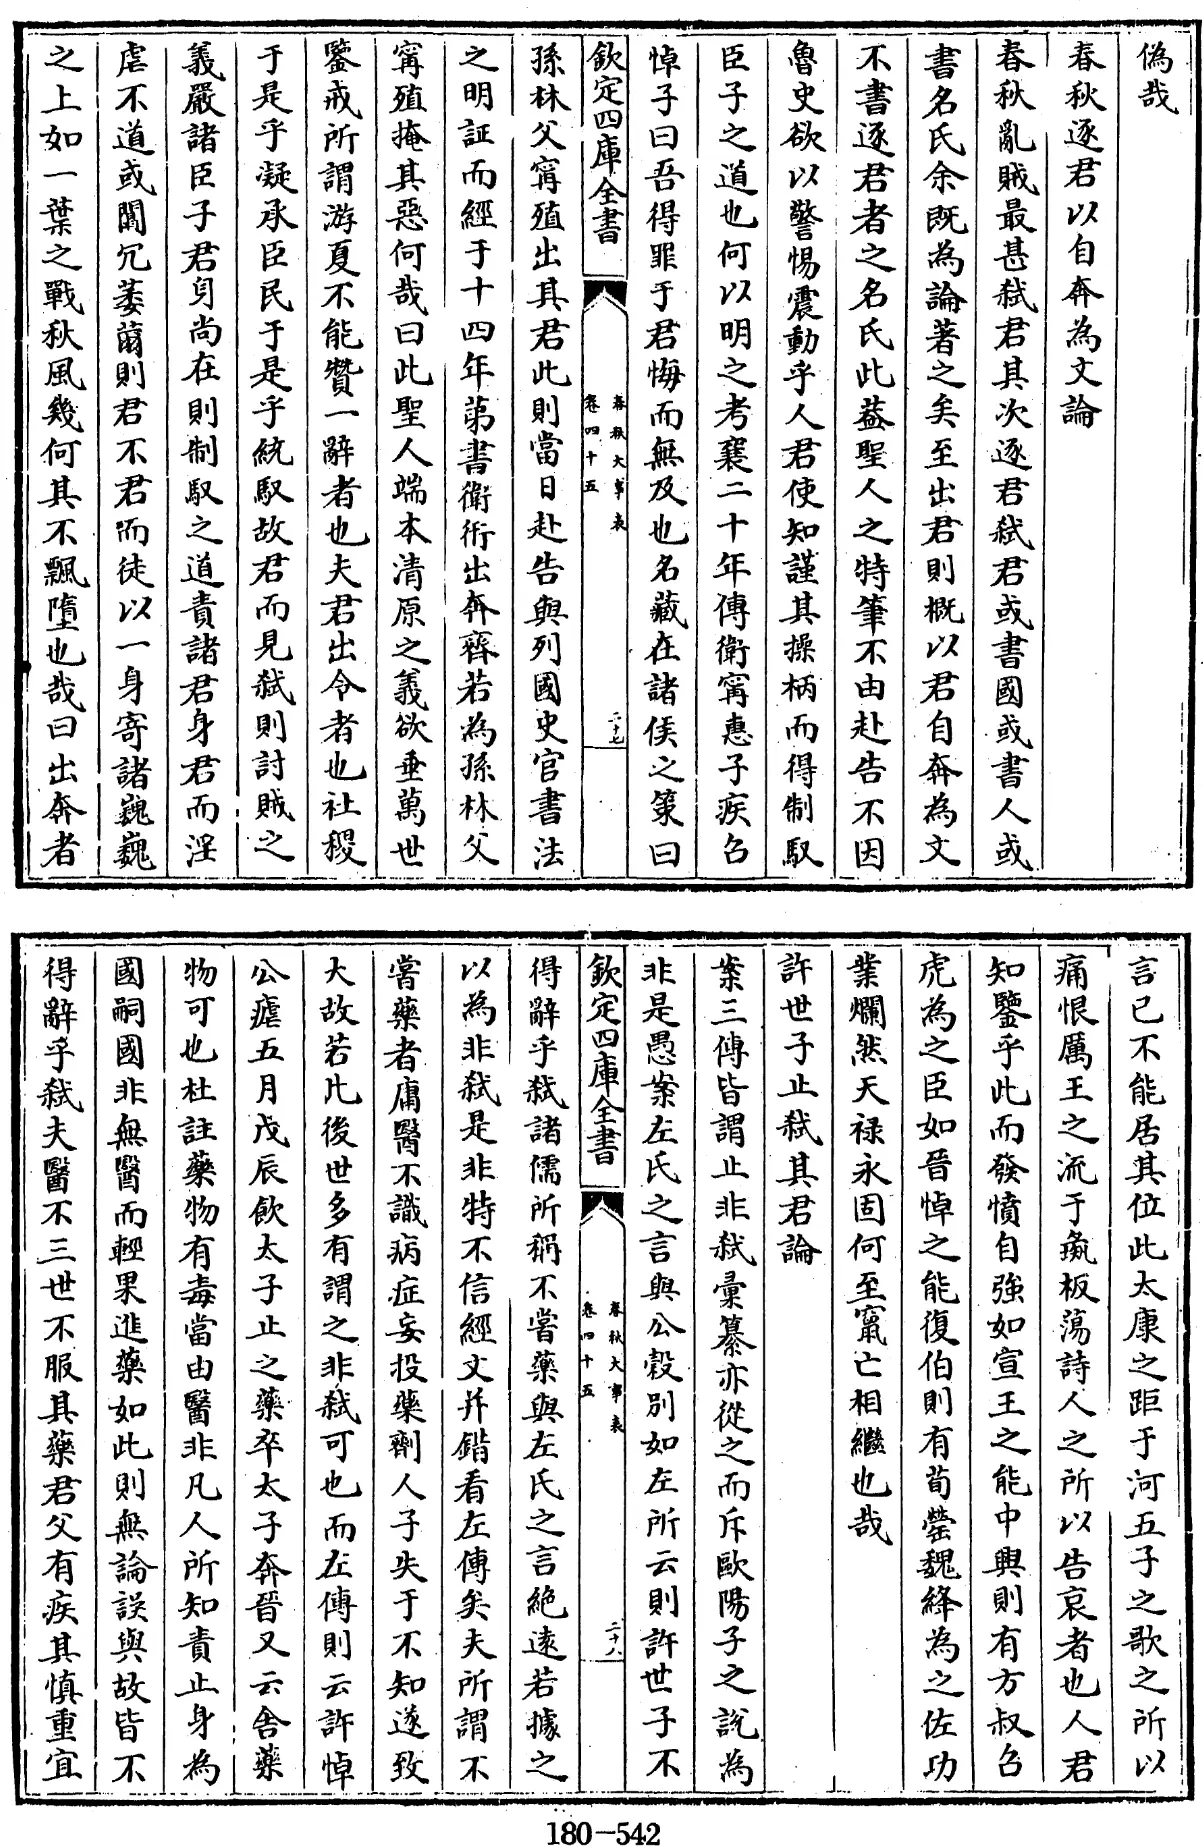 偽哉
春秋逐君以自奔為文論
春秋亂賊最甚弑君其次逐君弑君或書國或書人或
書名氏余既為論著之矣至出君則概以君自奔為文
不書逐君者之名氏此葢聖人之特筆不由赴告不因
魯史欲以警惕震動乎人君使知謹其操柄而得制馭
臣子之道也何以明之考襄二十年傳衛甯惠子疾召
悼子曰吾得罪于君悔而無及也名藏在諸侯之策曰
欽定四庫全書
春秋大事表
卷四十五
二十七
孫林父甯殖出其君此則當日赴告與列國史官書法
之明証而經于十四年第書衛衎出奔齊若為孫林父
甯殖掩其惡何哉曰此聖人端本清原之義欲垂萬世
鑒戒所謂游夏不能贊一辭者也夫君出令者也社稷
于是乎凝承臣民于是乎統馭故君而見弑則討賊之
義嚴諸臣子君身尚在則制馭之道責諸君身君而淫
虐不道或闒冗萎薾則君不君而徒以一身寄諸巍巍
之上如一葉之戰秋風幾何其不飄墮也哉曰出奔者
言已不能居其位此太康之距于河五子之歌之所以
痛恨厲王之流于彘板蕩詩人之所以告哀者也人君
知鑒乎此而發憤自強如宣王之能中興則有方叔召
虎為之臣如晉悼之能復伯則有荀罃魏絳為之佐功
業爛然天禄永固何至竄亡相繼也哉
許世子止弑其君論
案三傳皆謂止非弑彙纂亦從之而斥歐陽子之說為
非是愚案左氏之言與公穀別如左所云則許世子不
欽定四庫全書
春秋大事表
卷四十五
二十八
得辭乎弑諸儒所稱不嘗藥與左氏之言絶遠若據之
以為非弑是非特不信經文并錯看左傳矣夫所謂不
嘗藥者庸醫不識病症妄投藥劑人子失于不知遂致
大故若此後世多有謂之非弑可也而左傳則云許悼
公瘧五月戊辰飲太子止之藥卒太子奔晉又云舍藥
物可也杜註藥物有毒當由醫非凡人所知責止身為
國嗣國非無醫而輕果進藥如此則無論誤與故皆不
得辭乎弑夫醫不三世不服其藥君父有疾其慎重宜
180-542